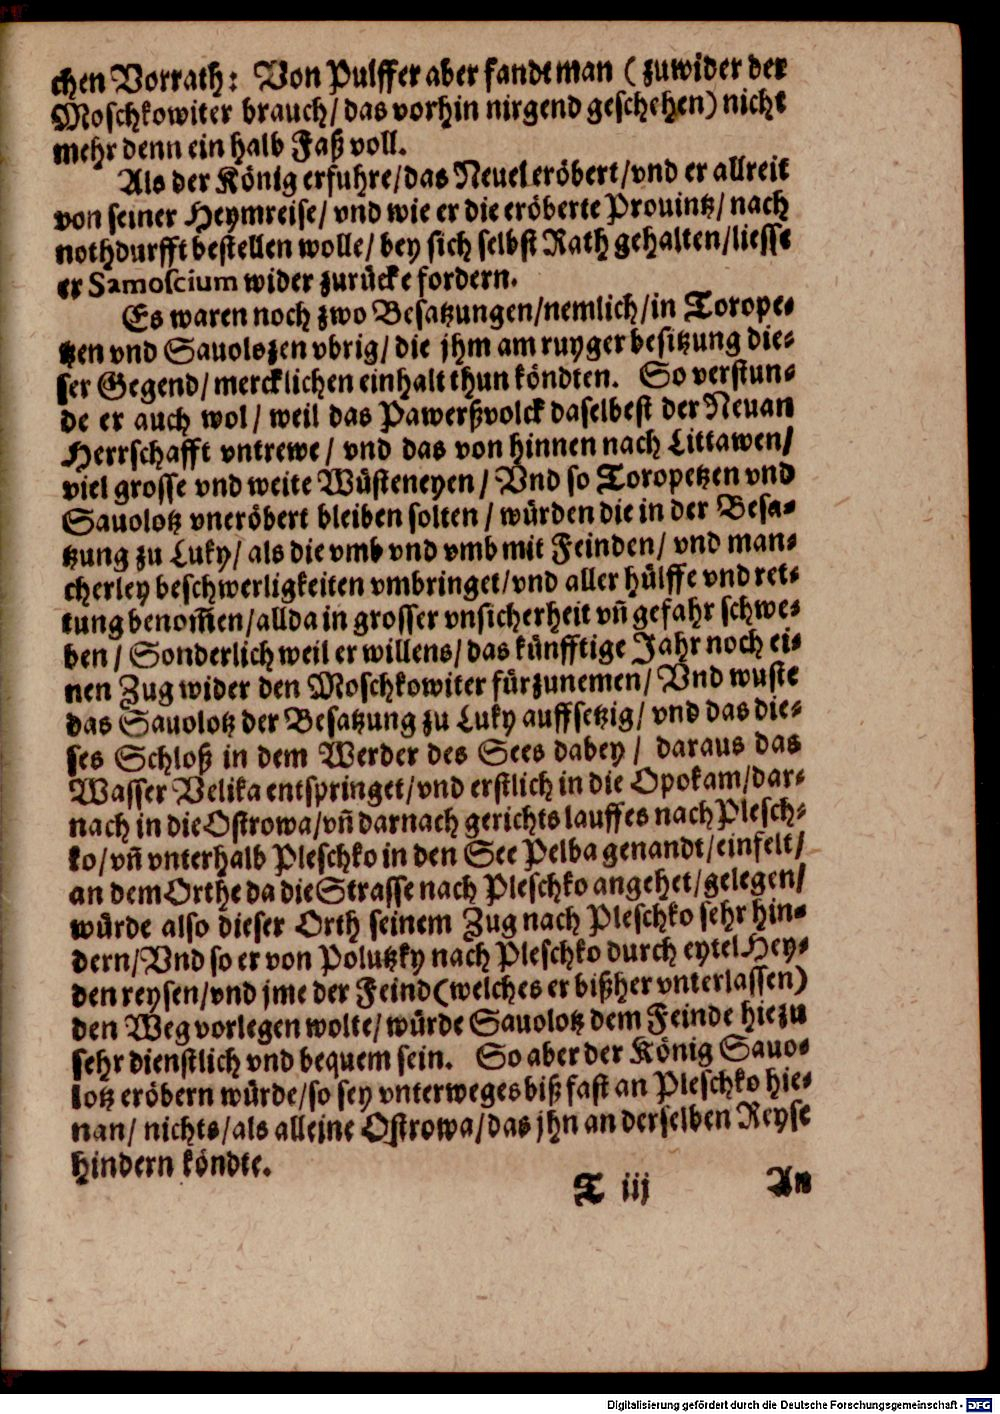 chen Vorrath: Von Pulffer aber fandt man ( zuwider der
Moschkowiter brauch/ das vorhin nirgend geschehen) nicht
mehr denn ein halb Faß voll.
Als der König erfuhre/das Neuel eröbert/vnd er allreit
von seiner Heymreise/ vnd wie er die eröberte Prouintz/ nach
nothdurfft bestellen wolle/ bey sich selbst Rath gehalten/liesse
er Samoscium wider zurücke fordern.
Es waren noch zwo Besatzungen/nemlich/in Torope-
tzen vnd Sauolozen vbrig/ die jhm am ruyger besitzung die-
ser Gegend/ mercklichen einhalt thun köndten. So verstun-
de er auch wol/ weil das Pawerßvolck daselbest der Neuan
Herrschafft vntrewe/ vnd das von hinnen nach Littawen/
viel grosse vnd weite Wüsteneyen/ Vnd so Toropetzen vnd
Sauolotz vneröbert bleiben solten/ würden die in der Besa-
tzung zu Luky/ als die vmb vnd vmb mit Feinden/ vnd man-
cherley beschwerligkeiten vmbringet/vnd aller hülffe vnd ret-
tung benom̄en/allda in grosser vnsicherheit vn̄ gefahr schwe-
ben/ Sonderlich weil er willens/ das künfftige Jahr noch ei-
nen Zug wider den Moschkowiter fürzunemen/ Vnd wuste
das Sauolotz der Besatzung zu Luky auffsetzig/ vnd das die-
ses Schloß in dem Werder des Sees dabey/ daraus das
Wasser Velika entspringet/vnd erstlich in die Opokam/dar-
nach in die Ostrowa/vn̄ darnach gerichts lauffes nach Plesch-
ko/vn̄ vnterhalb Pleschko in den See Pelba genandt/einfelt/
an dem Orthe da die Strasse nach Pleschko angehet/gelegen/
würde also dieser Orth seinem Zug nach Pleschko sehr hin-
dern/Vnd so er von Polutzky nach Pleschko durch eytel Hey-
den reysen/vnd jme der Feind (welches er bißher vnterlassen)
den Weg vorlegen wolte/ würde Sauolotz dem Feinde hiezu
sehr dienstlich vnd bequem sein. So aber der König Sauo-
lotz eröbern würde/so sey vnterweges biß fast an Pleschko hie-
nan/ nichts/als alleine Ostrowa/das jhn an derselben Reyse
hindern köndte.
T iij An
Digitalisierung gefördert durch die Deutsche Forschungsgemeinschaft - DFG